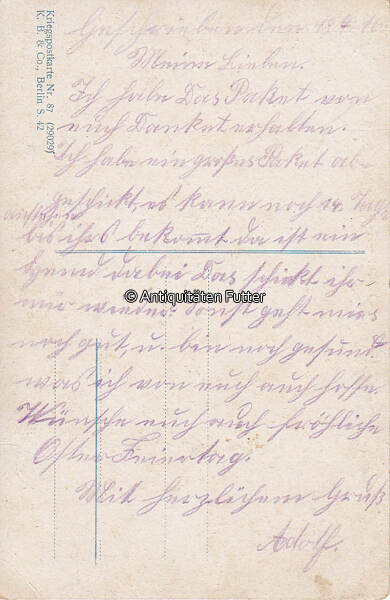 Kriegspostkarte Nr. 87 (29029)
K. B. & Co., Berlin S. 42
Geschrieben den 18 4. 16
Meine Lieben.
Ich habe Das Paket von
euch Dankat erhalten.
Ich habe ein großes Paket ab-
geschickt, es kann noch 14. Tage
anstehen
bis ihrs bekommt da ist ein
Hemd dabei Das schickt ihr
mir wieder. Sonst geht mirs
© Antiquitäten Futter
noch gut, u. ben noch gesund
was ich von euch auch hoffe.
Wünsche euch auch fröhliche
Oster Feiertag.
Mit herzlichem Gruß
Adolf.